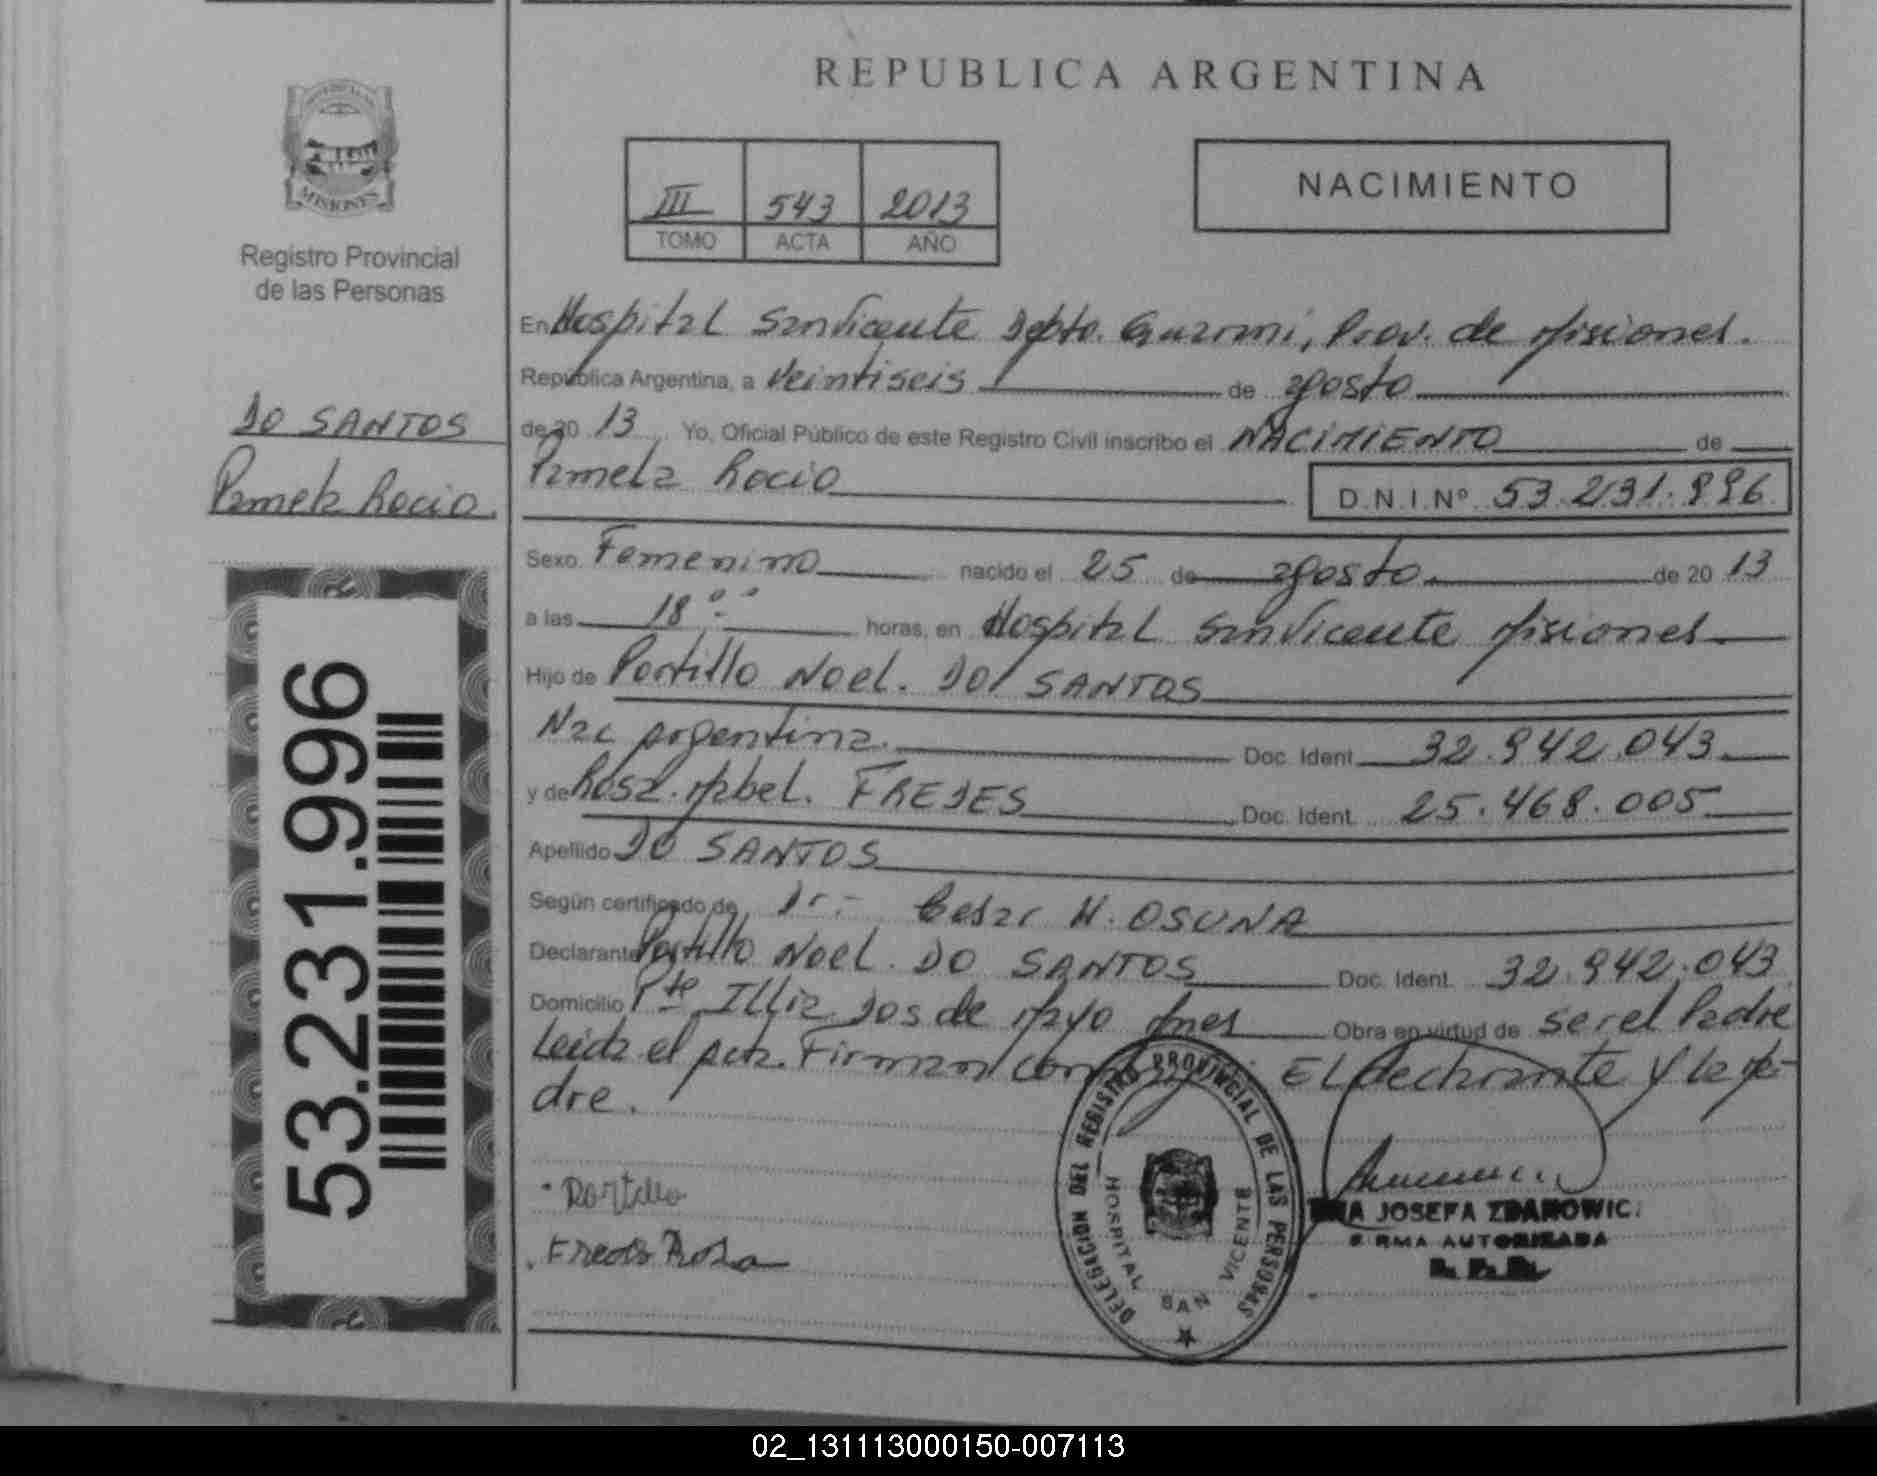 REPUBLICA ARGENTINA
MISIONES
Registro Provincial
de las Personas
III 543 2013
TOMO ACTA AÑO
NACIMIENTO
DO SANTOS
Pamela Rocio
53.231.996
En Hospital San Vicente Depto. Guarani, Prov. de Misiones.
República Argentina, a Veintiseis de agosto
de 20 13 Yo, Oficial Público de este Registro Civil inscribo el NACIMIENTO de
Pamela Rocio D.N.I.Nº 53.231.996
Sexo Femenino nacido el 25 de agosto de 20 13
a las 18 horas, en Hospital San Vicente Misiones
Hijo de Portillo Noel. DO SANTOS
Nac argentina. Doc. Ident. 32.942.043
y de Rosa Mabel. FREDES Doc. Ident. 25.468.005
Apellido DO SANTOS
Según certificado de Dr.- Cesar H. OSUNA
Declarante Portillo Noel. DO SANTOS Doc. Ident. 32.942.043
Domicilio Pte Illia Dos de Mayo Mnes Obra en virtud de ser el Padre
Leida el acta. Firman conmigo: El declarante y la Ma-
dre.
Portillo
Fredes Rosa
DELEGACION DEL REGISTRO PROVINCIAL DE LAS PERSONAS
HOSPITAL SAN VICENTE
JOSEFA ZDANOWIC
FIRMA AUTORIZADA
02_131113000150-007113